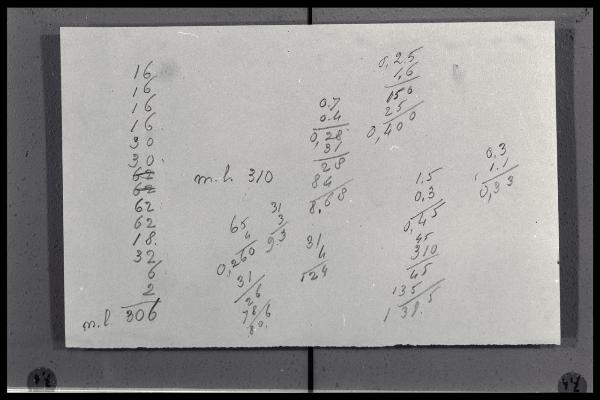 16
16
16
16
30
30
62
62
62
62
18
32
6
2
m.l. 306
m.l. 310
65
4
0,260
31
26
31
3
93
0.7
0.4
0,28
31
28
84
8,68
31
4
124
0,25
1,6
150
25
0,400
1.5
0,3
0,45
45
310
45
135
138.5
0,3
1.1
0,33